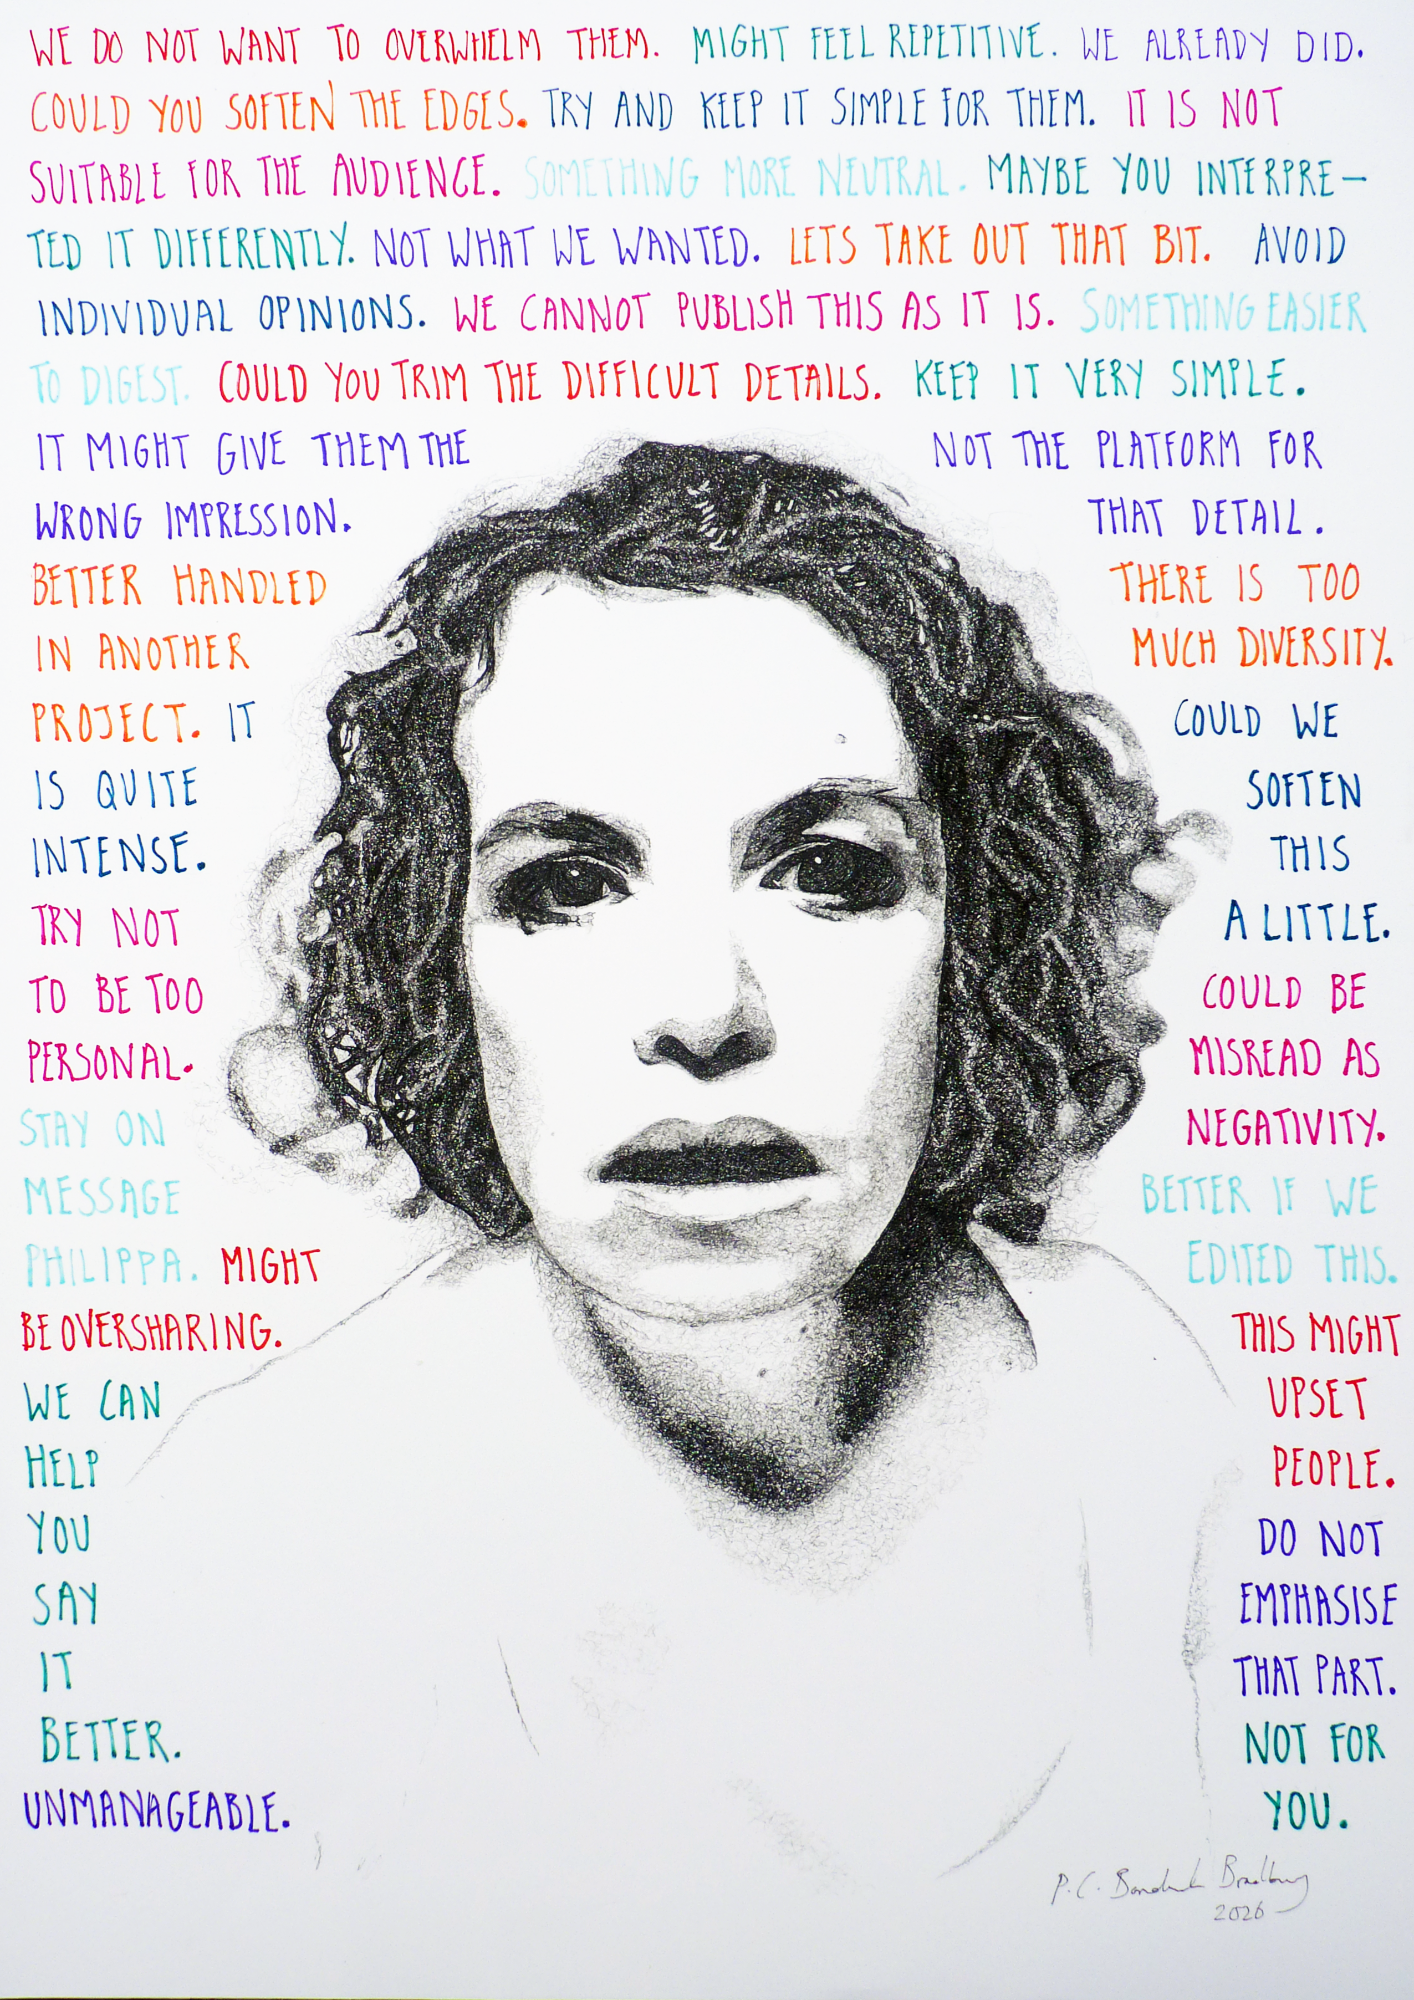 WE DO NOT WANT TO OVERWHELM THEM. MIGHT FEEL REPETITIVE. WE ALREADY DID.
COULD YOU SOFTEN THE EDGES. TRY AND KEEP IT SIMPLE FOR THEM. IT IS NOT
SUITABLE FOR THE AUDIENCE. SOMETHING MORE NEUTRAL. MAYBE YOU INTERPRE-
TED IT DIFFERENTLY. NOT WHAT WE WANTED. LETS TAKE OUT THAT BIT. AVOID
INDIVIDUAL OPINIONS. WE CANNOT PUBLISH THIS AS IT IS. SOMETHING EASIER
TO DIGEST. COULD YOU TRIM THE DIFFICULT DETAILS. KEEP IT VERY SIMPLE.
IT MIGHT GIVE THEM THE
WRONG IMPRESSION.
BETTER HANDLED
IN ANOTHER
PROJECT. IT
IS QUITE
INTENSE.
TRY NOT
TO BE TOO
PERSONAL.
STAY ON
MESSAGE
PHILIPPA. MIGHT
BE OVERSHARING.
WE CAN
HELP
YOU
SAY
IT
BETTER.
UNMANAGEABLE.
NOT THE PLATFORM FOR
THAT DETAIL.
THERE IS TOO
MUCH DIVERSITY.
COULD WE
SOFTEN
THIS
A LITTLE.
COULD BE
MISREAD AS
NEGATIVITY.
BETTER IF WE
EDITED THIS.
THIS MIGHT
UPSET
PEOPLE.
DO NOT
EMPHASISE
THAT PART.
NOT FOR
YOU.
P.C. Bradbury
2026